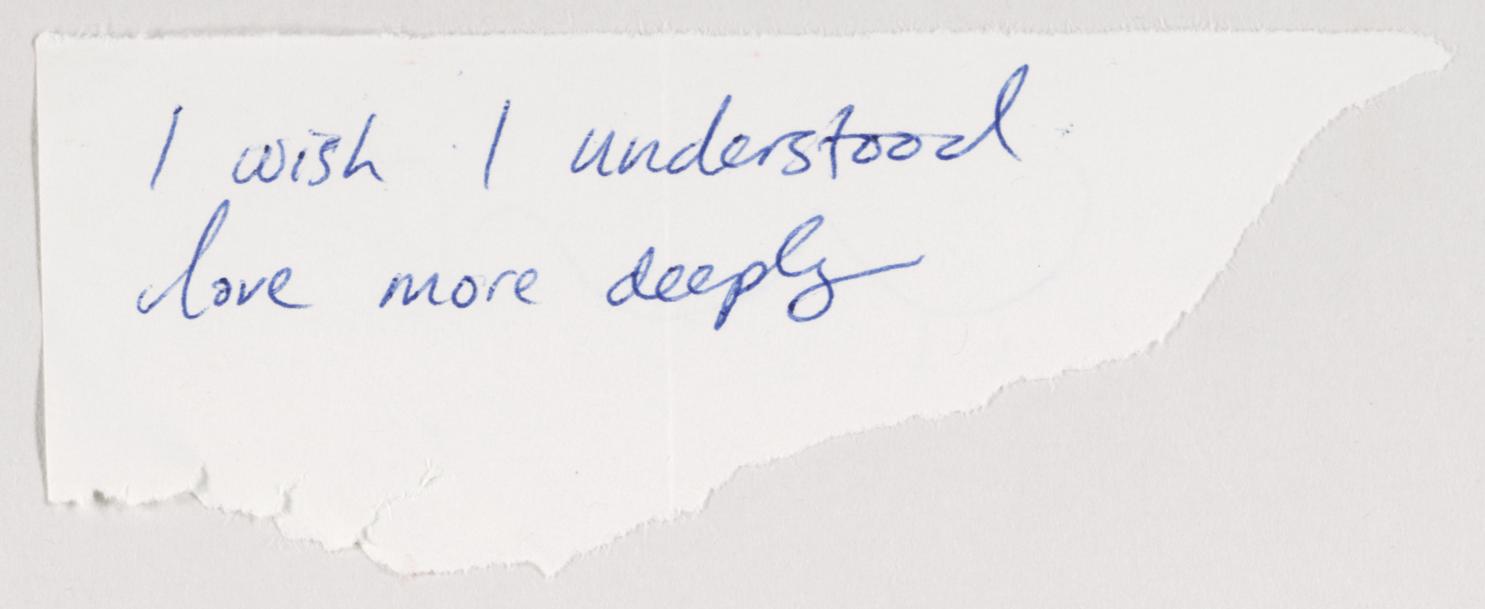 I wish I understood
love more deeply